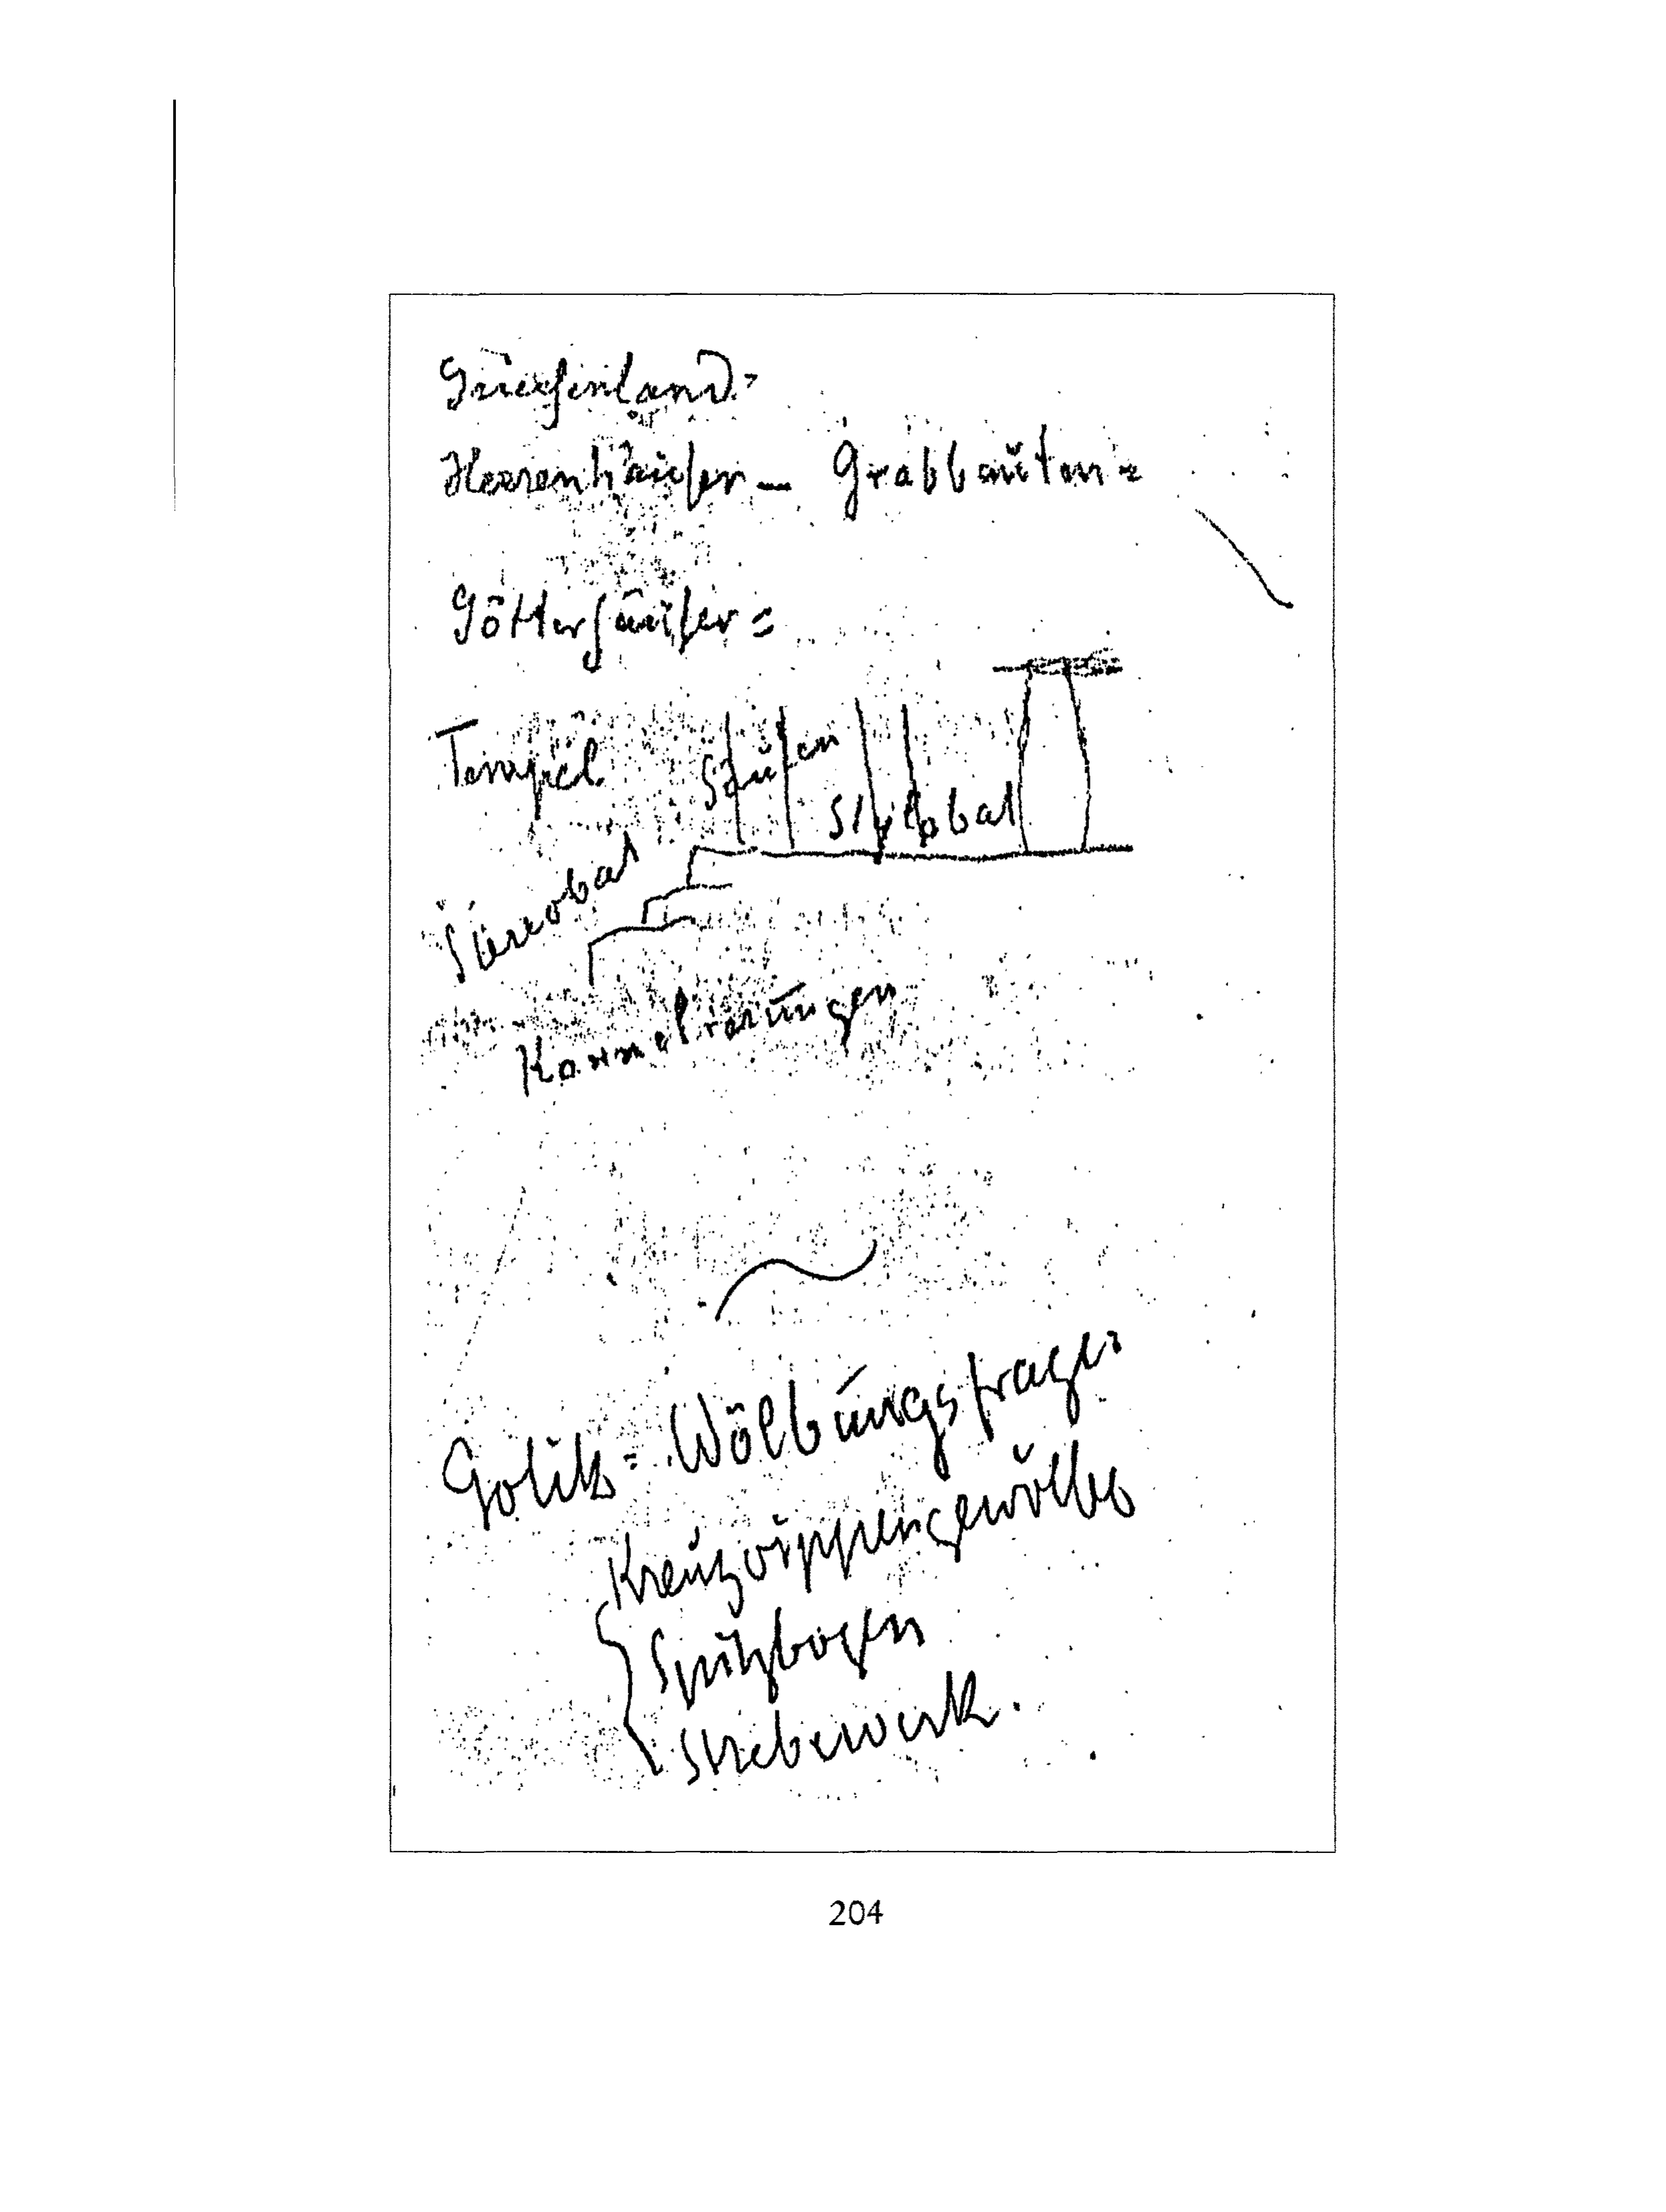 Griechenland=
Herrenhäuser – Grabbauten=
Götterhäuser=
Tempel
Stufen
Stylobat
Stereobat
Kannelierungen
Gotik= Wölbungsfrage:
Kreuzrippengewölbe
Spitzbogen
Strebewerk.
204